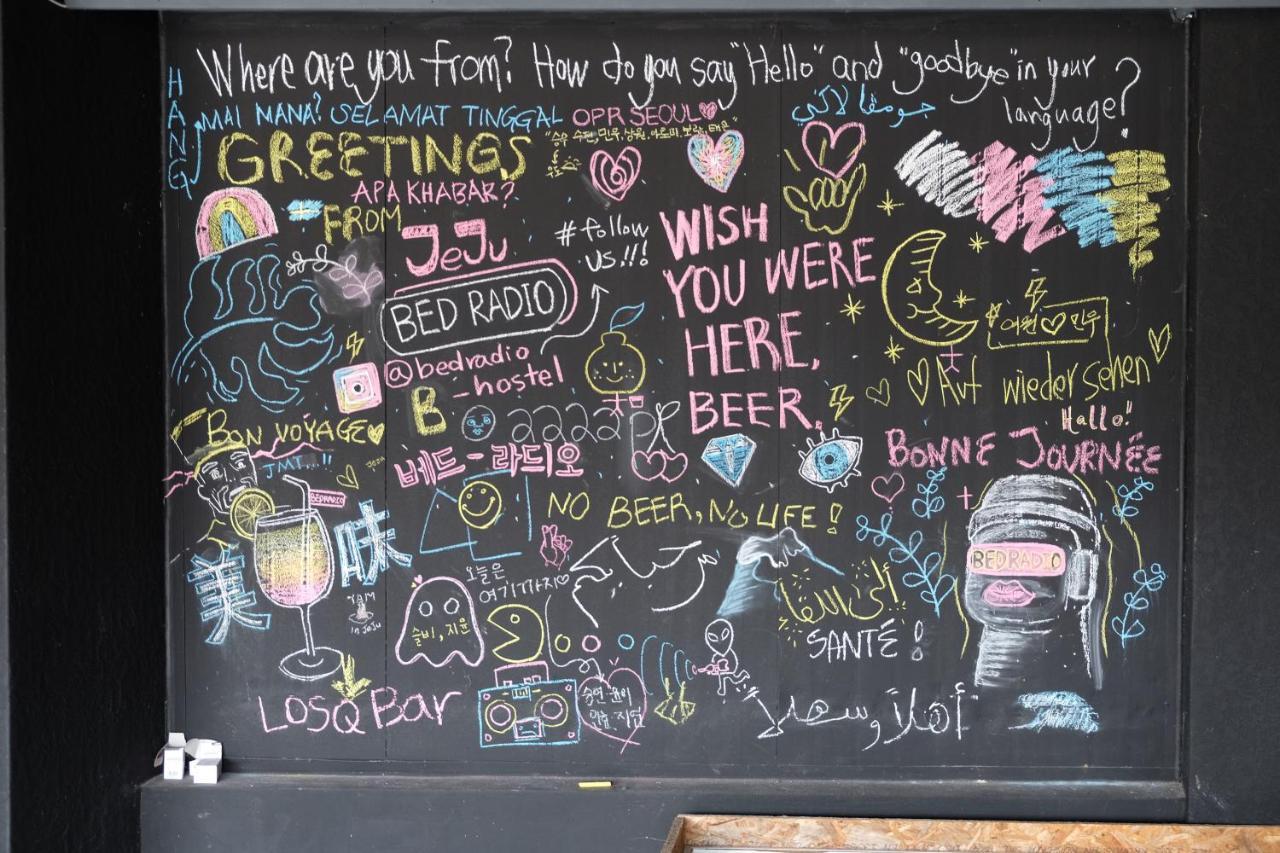 Where are you from? How do you say "Hello" and "goodbye" in your language?
HANG
MAI MANA? SELAMAT TINGGAL
OPR SEOUL
GREETINGS
APA KHABAR?
FROM
JeJu
BED RADIO
#follow
us!!!
@bedradio
_hostel
B
WISH
YOU WERE
HERE,
BEER.
여원♡민우
Auf wiedersehen
Hallo!
BONNE JOURNÉE
BON VOYAGE
JMT...!!
BEDRADIO
베드-라디오
aaaaa
NO BEER, NO LIFE!
美味
오늘은
여기까지♡
YAM
in JeJu
슬비, 지윤
مرحبا
إلى اللقاء
SANTÉ!
BEDRADIO
LOSQ Bar
أهلاً وسهلاً